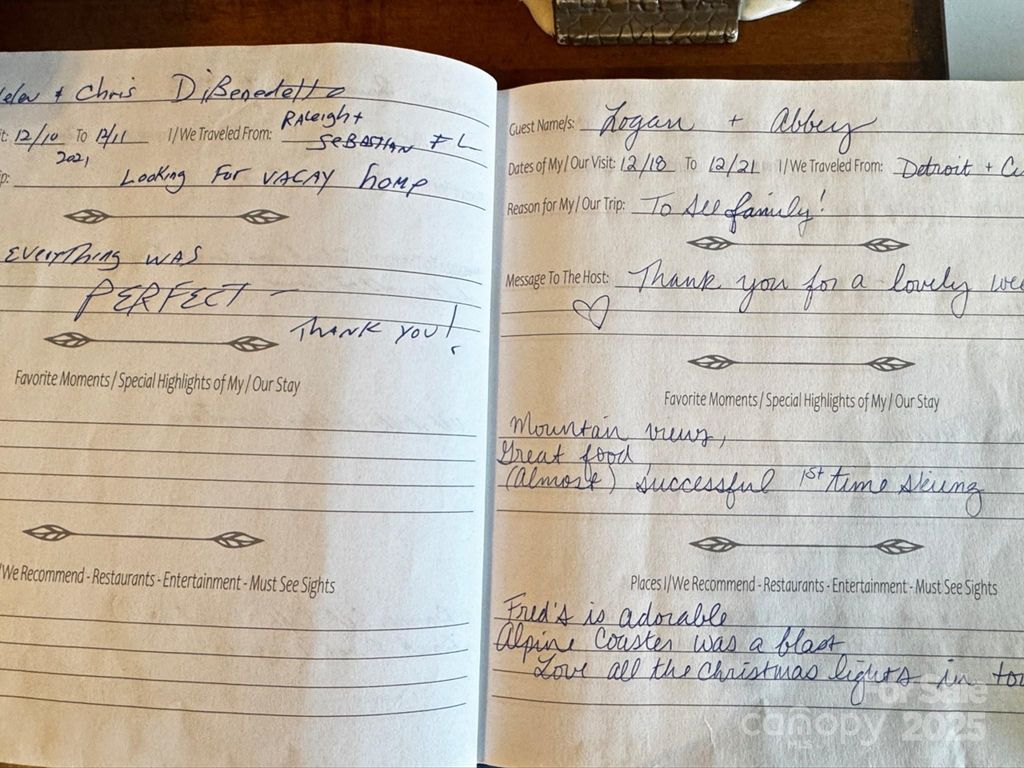 + Chris DiBenedetto
t: 12/10 To 12/11 I/We Traveled From: RALeigh +
2021 SeBASTIAN FL
p: Looking For VACAY home
EVERYThing WAS
PERFECT —
THANK YOU!
Favorite Moments / Special Highlights of My / Our Stay
/We Recommend - Restaurants - Entertainment - Must See Sights
Guest Name/s: Logan + Abbey
Dates of My / Our Visit: 12/18 To 12/21 I/We Traveled From: Detroit +
Reason for My / Our Trip: To see family!
Message To The Host: Thank you for a lovely
♡
Favorite Moments / Special Highlights of My / Our Stay
Mountain views,
Great food
(Almost) successful 1st time skiing
Places I/We Recommend - Restaurants - Entertainment - Must See Sights
Fred's is adorable
Alpine Coaster was a blast
Love all the Christmas lights in
For Sale
canopy 2025
MLS